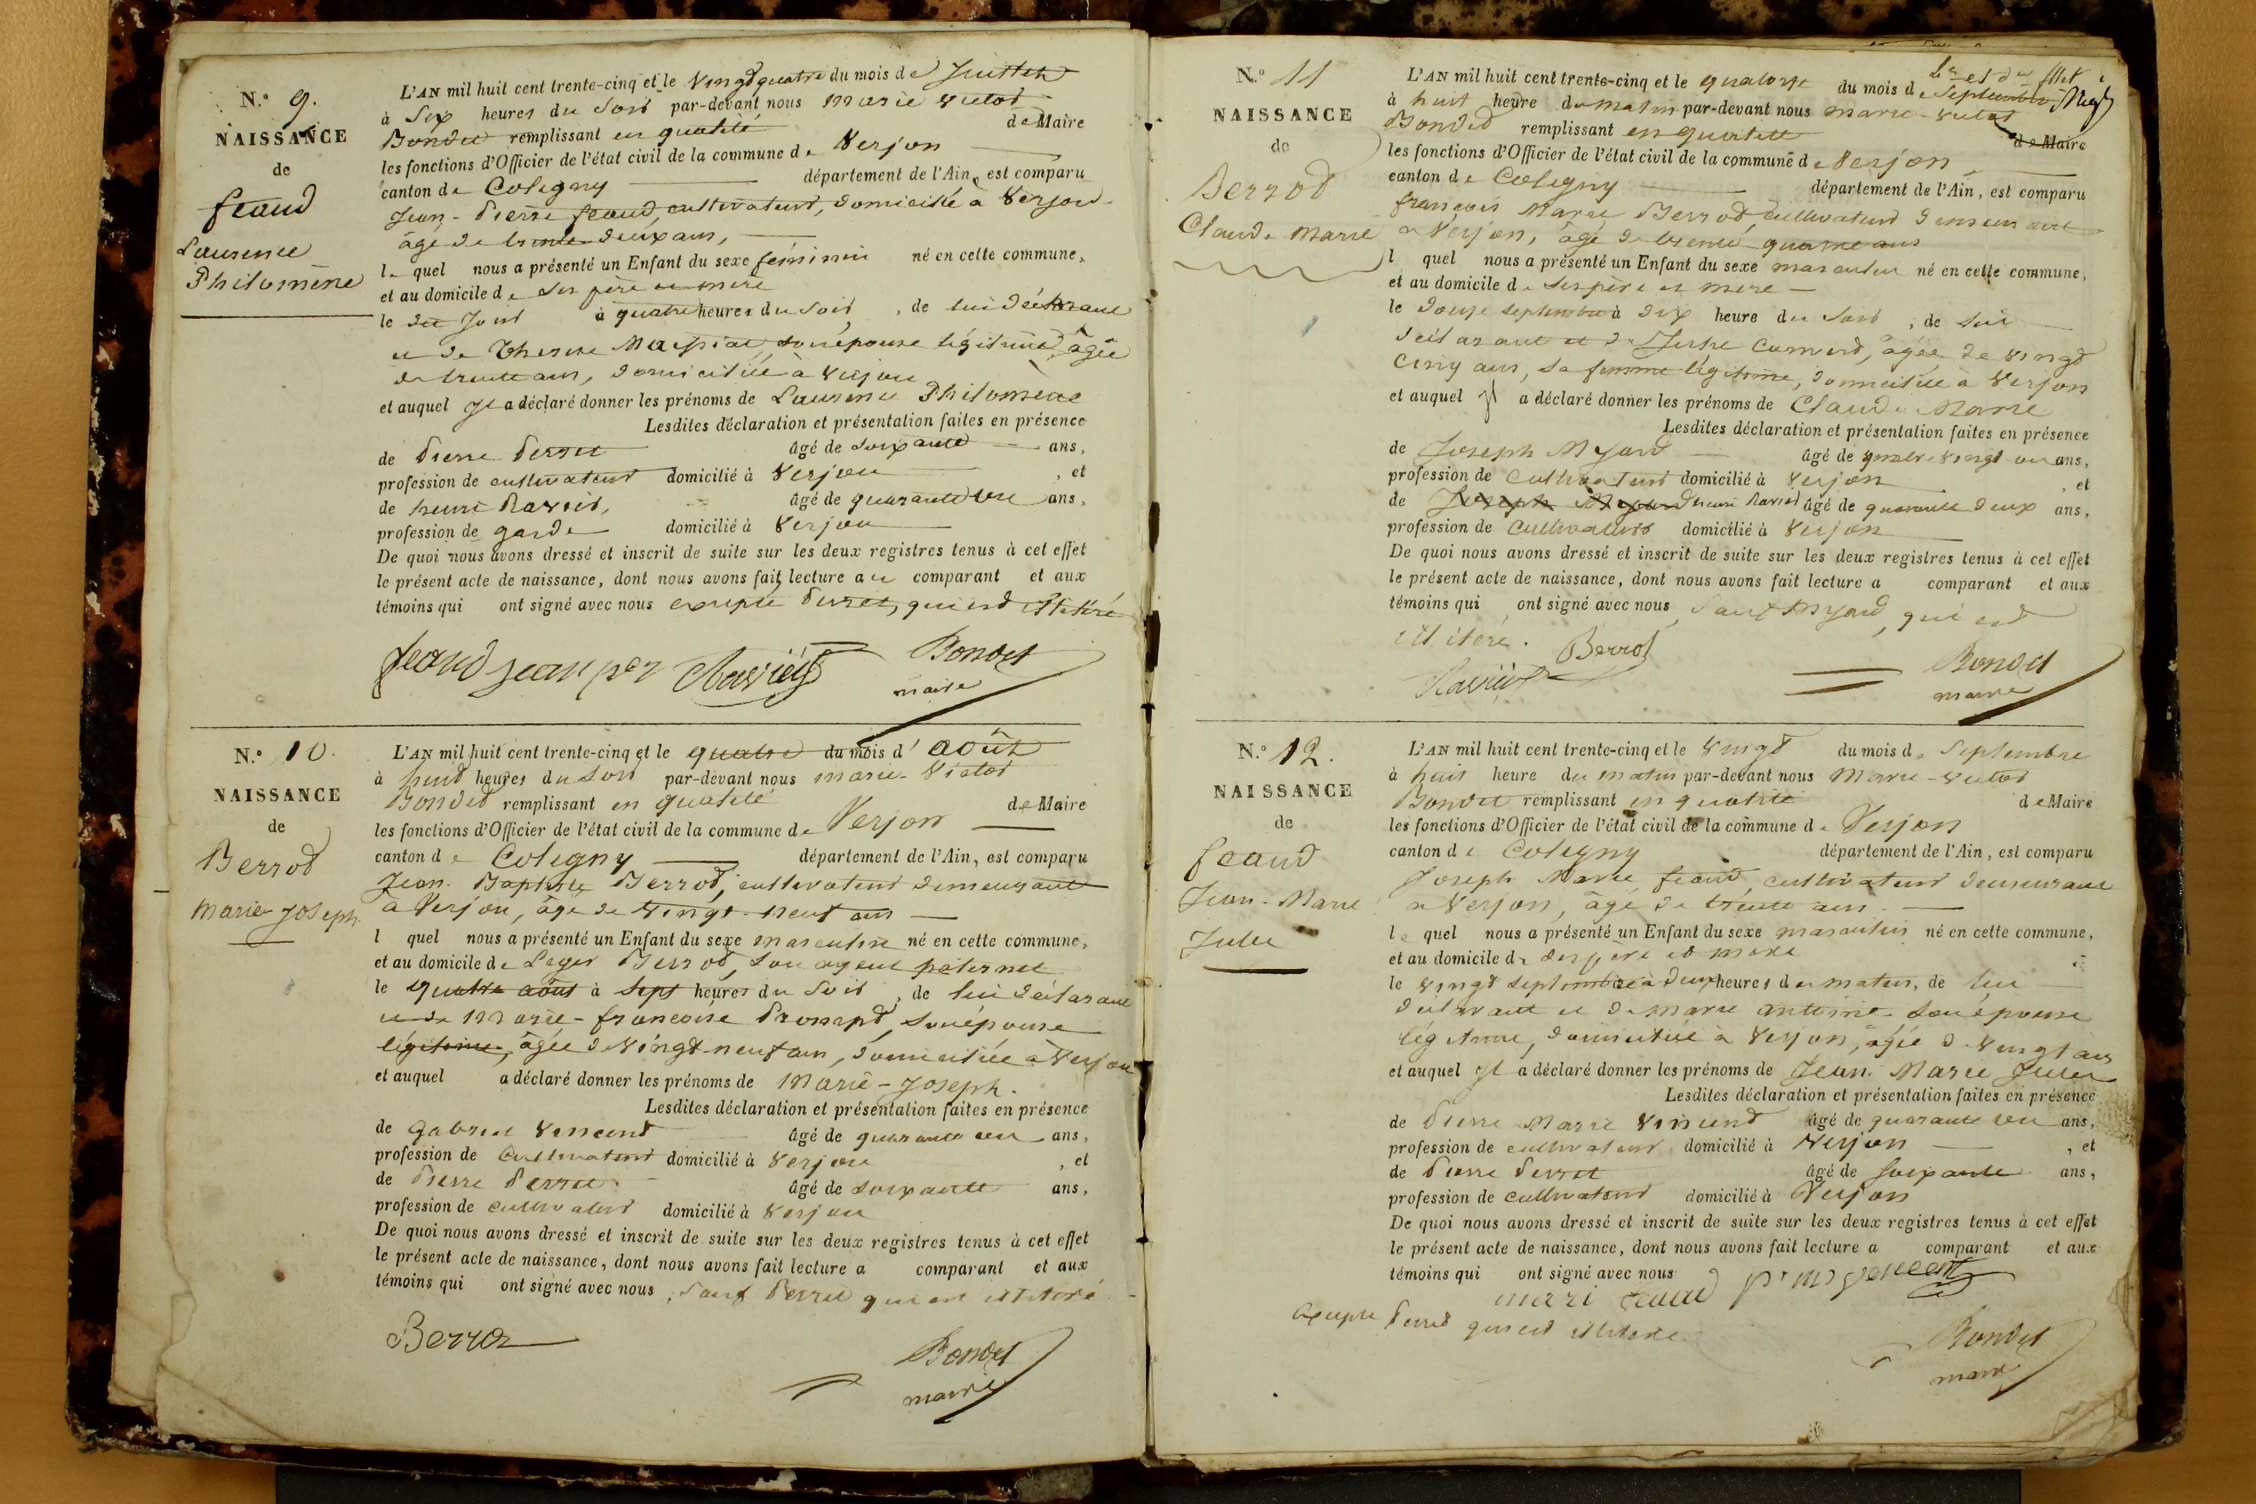 N.° 9.
NAISSANCE
de
feaud
Laurence
Philomène
L'AN mil huit cent trente-cinq et le vingt quatre du mois de Juillet
à Six heures du Soir par-devant nous marie victor
Bondet remplissant en qualité de Maire
les fonctions d'Officier de l'état civil de la commune de Verjon
canton de Coligny département de l'Ain, est comparu
Jean-Pierre feaud, cultivateur, domicilié à Verjon
âgé de trente deux ans,
le quel nous a présenté un Enfant du sexe féminin né en cette commune,
et au domicile de ses père et mère
le dit jour à quatre heures du Soir, de lui déclarant
et de Therese son épouse légitime, âgée
de trente ans, domiciliée à Verjon
et auquel Il a déclaré donner les prénoms de Laurence Philomène
Lesdites déclaration et présentation faites en présence
de Pierre Perret âgé de soixante ans,
profession de cultivateur domicilié à Verjon, et
de henri Ravier, âgé de quarante un ans,
profession de garde domicilié à Verjon
De quoi nous avons dressé et inscrit de suite sur les deux registres tenus à cet effet
le présent acte de naissance, dont nous avons fait lecture au comparant et aux
témoins qui ont signé avec nous excepté Perret, qui est illitéré
feaud jean per Ravier Bondet
maire
N.° 10.
NAISSANCE
de
Berrod
Marie-Joseph
L'AN mil huit cent trente-cinq et le quatre du mois d' août
à huit heures du Soir par-devant nous marie-Victor
Bondet remplissant en qualité de Maire
les fonctions d'Officier de l'état civil de la commune de Verjon
canton de Coligny département de l'Ain, est comparu
Jean-Baptiste Berrod, cultivateur demeurant
à Verjon, âgé de vingt-neuf ans
l quel nous a présenté un Enfant du sexe masculin né en cette commune,
et au domicile de Léger Berrod, son ayeul paternel
le quatre août à sept heures du Soir, de lui déclarant
et de Marie-francoise son épouse
légitime, âgée de vingt-neuf ans, domiciliée à Verjon
et auquel a déclaré donner les prénoms de Marie-Joseph.
Lesdites déclaration et présentation faites en présence
de gabriel Vincent âgé de quarante un ans,
profession de Cultivateur domicilié à Verjon, et
de Pierre Perret âgé de soixante ans,
profession de cultivateur domicilié à Verjon
De quoi nous avons dressé et inscrit de suite sur les deux registres tenus à cet effet
le présent acte de naissance, dont nous avons fait lecture a comparant et aux
témoins qui ont signé avec nous, sauf Perret qui est illitéré
Berrod
Bondet
maire
N.° 11
NAISSANCE
de
Berrod
Claude Marie
L'AN mil huit cent trente-cinq et le quatorze du mois de Septembre
à huit heure du matin par-devant nous marie-victor
Bondet remplissant en qualité de Maire
les fonctions d'Officier de l'état civil de la commune de Verjon
canton de Coligny département de l'Ain, est comparu
françois Marie Berrod, cultivateur demeurant
à Verjon, âgé de trente quatre ans
l quel nous a présenté un Enfant du sexe masculin né en cette commune,
et au domicile de ses père et mère
le douze septembre à dix heure du Soir, de lui
déclarant et de âgée de vingt
cinq ans, sa femme légitime, domiciliée à Verjon
et auquel Il a déclaré donner les prénoms de Claude Marie
Lesdites déclaration et présentation faites en présence
de Joseph Myard âgé de quatre vingt un ans,
profession de cultivateur domicilié à Verjon, et
de Joseph Myard henri Ravier âgé de quarante deux ans,
profession de Cultivateur domicilié à Verjon
De quoi nous avons dressé et inscrit de suite sur les deux registres tenus à cet effet
le présent acte de naissance, dont nous avons fait lecture a comparant et aux
témoins qui ont signé avec nous, Sauf Myard, qui est
illitéré. Berrod
Ravier Bondet
maire
N.° 12.
NAISSANCE
de
feaud
Jean-Marie
Jules
L'AN mil huit cent trente-cinq et le vingt du mois de Septembre
à huit heure du matin par-devant nous Marie-victor
Bondet remplissant en qualité de Maire
les fonctions d'Officier de l'état civil de la commune de Verjon
canton de Coligny département de l'Ain, est comparu
Joseph Marie feaud, cultivateur demeurant
à Verjon, âgé de trente ans
le quel nous a présenté un Enfant du sexe masculin né en cette commune,
et au domicile de ses père et mère
le vingt septembre à deux heures du matin, de lui
déclarant et de marie antoine son épouse
légitime, domiciliée à Verjon, âgée de vingt ans
et auquel Il a déclaré donner les prénoms de Jean Marie Jules
Lesdites déclaration et présentation faites en présence
de Pierre Marie Vincent âgé de quarante un ans,
profession de cultivateur domicilié à Verjon, et
de Pierre Perret âgé de soixante ans,
profession de cultivateur domicilié à Verjon
De quoi nous avons dressé et inscrit de suite sur les deux registres tenus à cet effet
le présent acte de naissance, dont nous avons fait lecture a comparant et aux
témoins qui ont signé avec nous
mari feaud p m vencent
excepté Perret qui est illitéré.
Bondet
maire